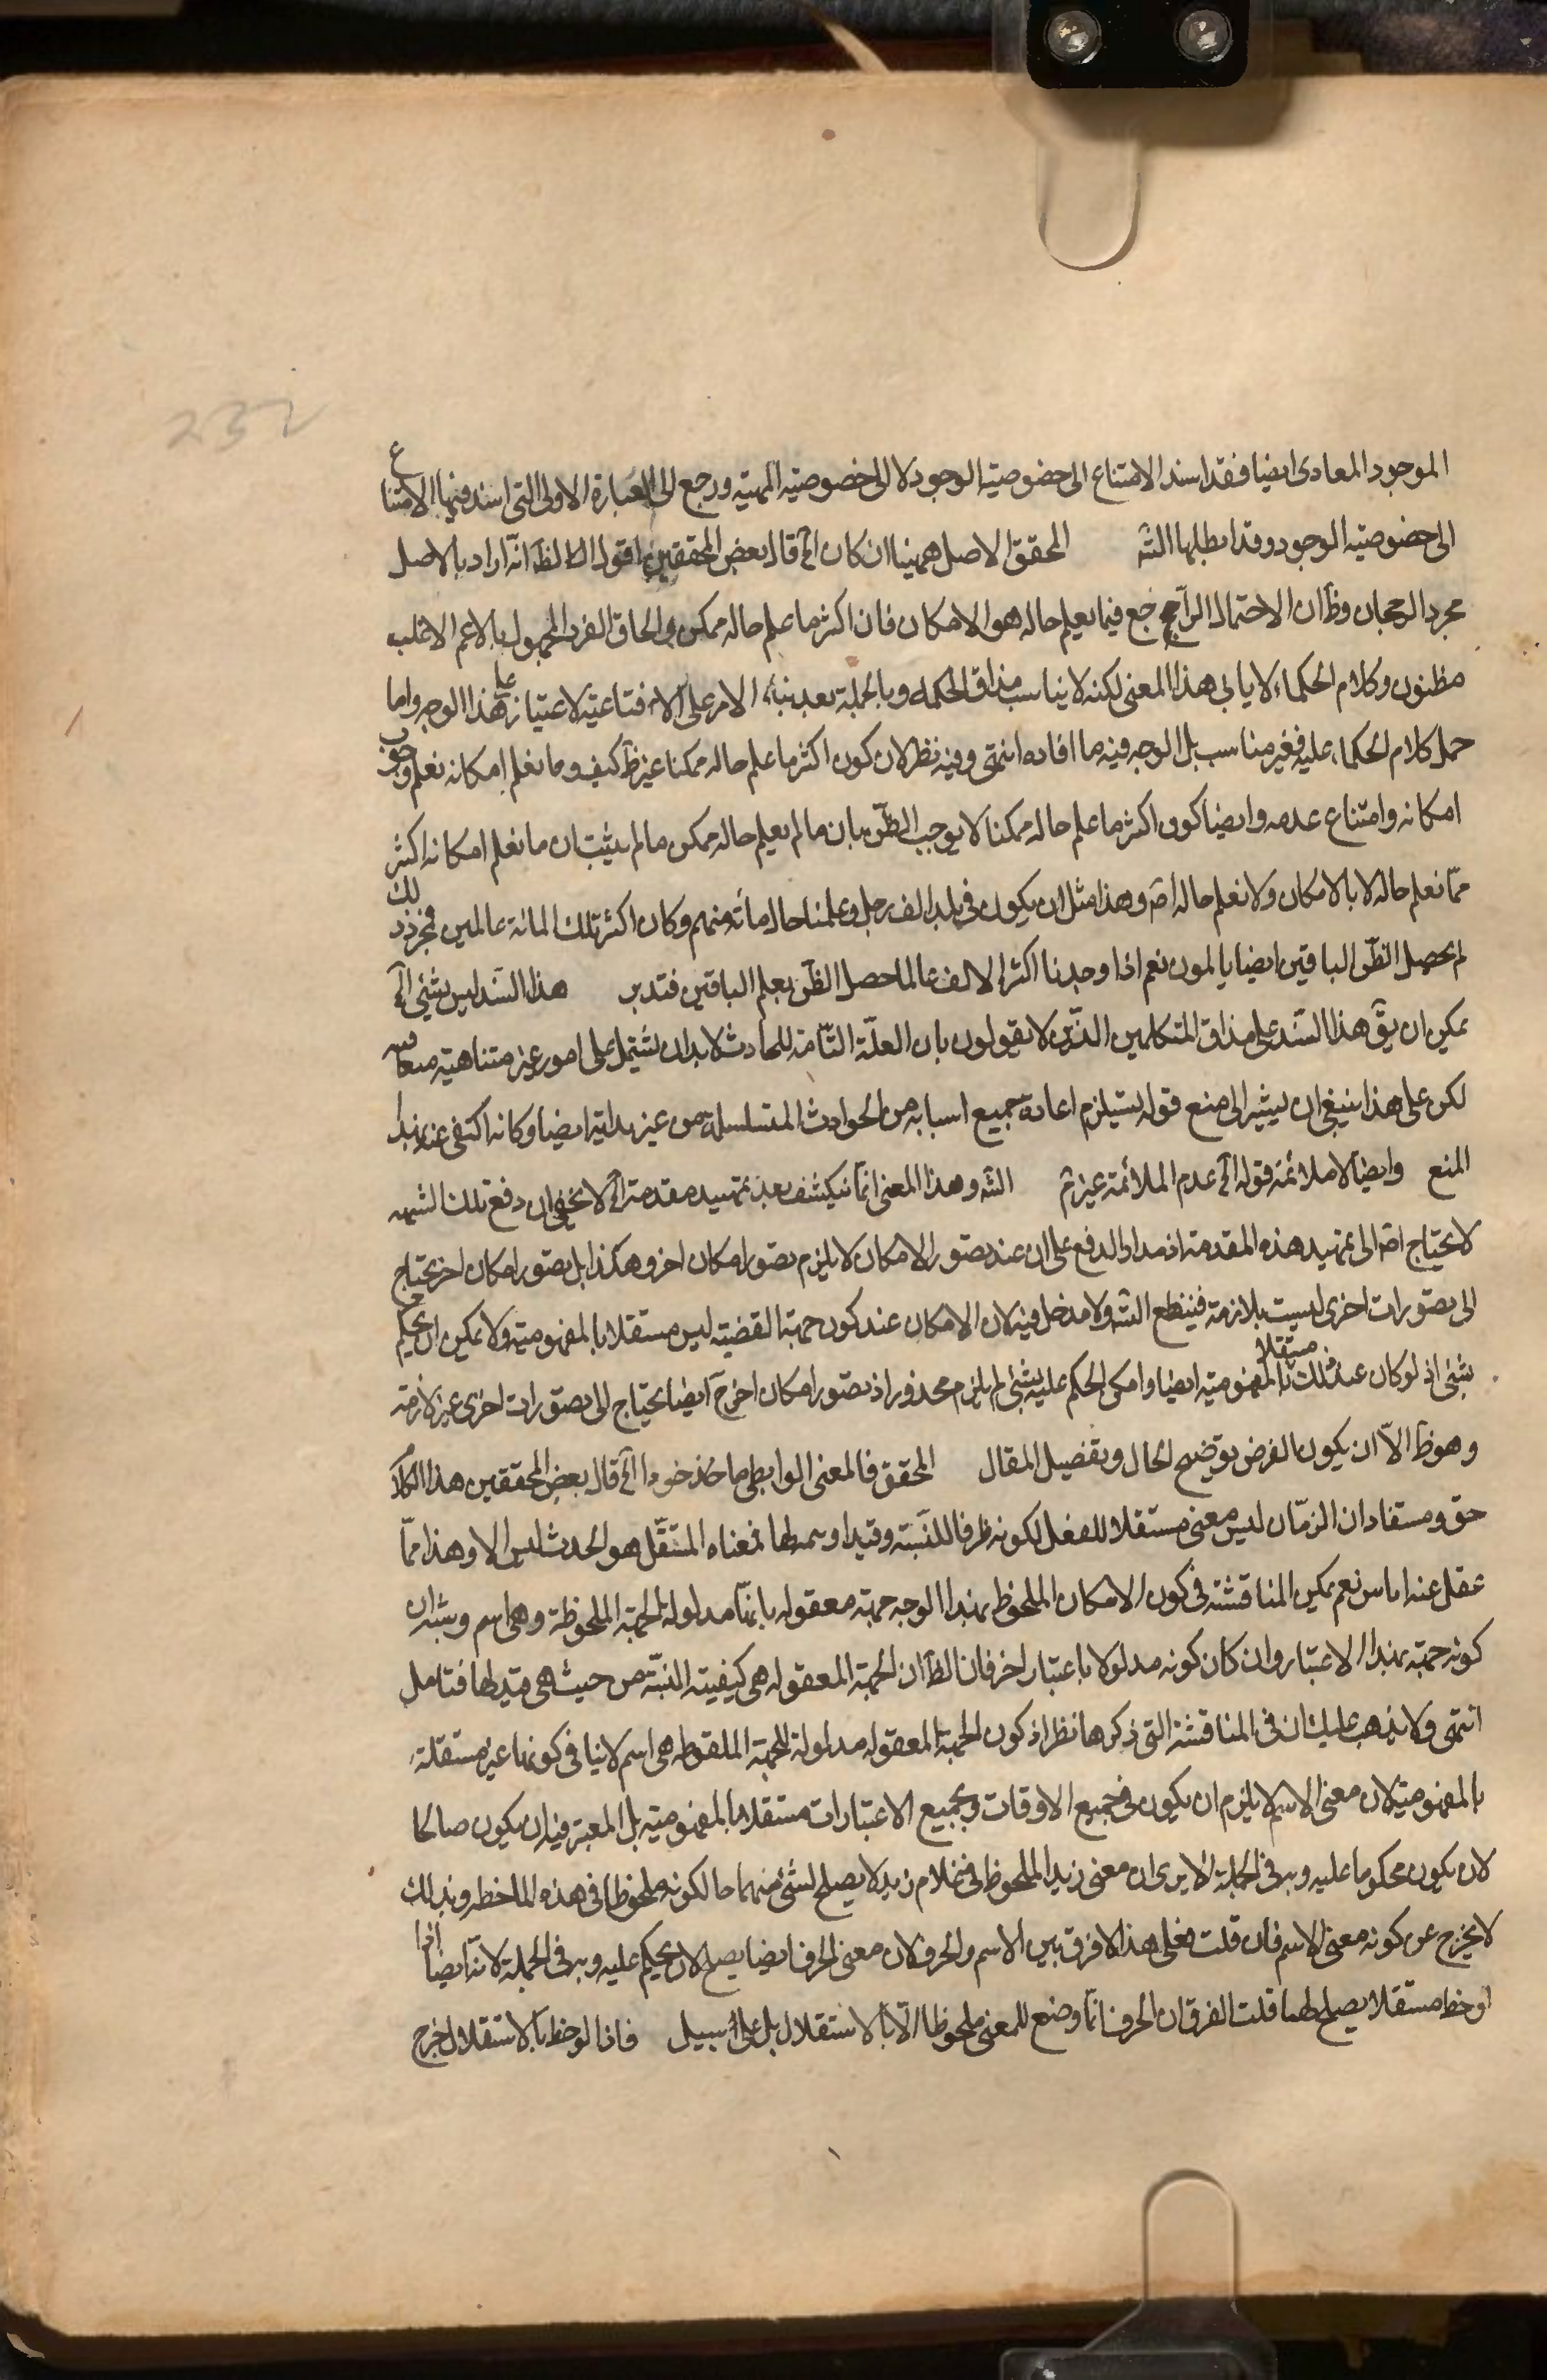 232
الموجود المعادى ايضا فقد اسند الامتناع الى خصوصية الوجود لا الى خصوصية المهية ورجع الى العبارة الاولى التى اسند فيها الامتناع
الى خصوصية الوجود وقد ابطلها الشه المحقق الاصل ههنا ان كان اآه قال بعض المحققين اقول الظ انه اراد بالاصل
مجرد الرجحان وظ ان الاحتمال الراجح فيما يعلم حاله هو الامكان فان اكثر ما علم حاله ممكن والحاق الفرد المجهول بالاعم الاغلب
مظنون وكلام الحكماء لا يابى هذا المعنى لكنه لا يناسب مذاق الحكمه وبالجملة بعد بناء الامر على الاقناعية لا غبار على هذا الوجه واما
حمل كلام الحكماء عليه فغير مناسب بل الوجه فيه ما افاده انتهى وفيه نظر لان كون اكثر ما علم حاله ممكنا غير ظ كيف وما نعلم امكانه نعلم وجوب
امكانه وامتناع عدمه وايضا كون اكثر ما علم حاله ممكنا لا يوجب الظن بان ما لم يعلم حاله ممكن ما لم يثبت ان ما نعلم امكانه اكثر
مما نعلم حاله لا بالامكان ولا نعلم حاله اصّ وهذا مثل ان يكون فى بلد الف رجل وعلمنا حال مائة منهم وكان اكثر تلك المائة عالمين فبمجرد ذلك
لم يحصل الظن الباقين ايضا يالمون نعم اذا وجدنا اكثر الالف عالما حصل الظن بعلم الباقين فتدبر هذا السند ليس بشئ اآه
يمكن ان يق هذا السند على مذاق المتكلمين الذين لا يقولون بان العلة التامة للحادث لابد ان يشتمل على امور غير متناهية متعاقبه
لكن على هذا ينبغى ان يشير الى منع قوله يستلزم اعادة جميع اسبابه من الحوادث المتسلسلة من غير بداية ايضا وكانه اكتفى عنه بهذا
المنع وايضا لا ملائمة قوله اآه عدم الملائمة غير ثم الشه وهذا المعنى انما ينكشف بعد تمهيد مقدمة اآه لا يخفى ان دفع تلك الشبهه
لا يحتاج اصّ الى تمهيد هذه المقدمة اذ مدار الدفع على ان عند تصور الامكان لا يلزم تصور امكان اخر وهكذا بل تصور امكان اخر يحتاج
الى تصورات اخرى ليست بلازمة فينقطع الشه ولا مدخل فيه لان الامكان عند كون جهة القضية ليس مستقلا بالمفهومية ولا يمكن ان يحكم
بشئ اذ لو كان عند ذلك مستقلا بالمفهومية ايضا وامكن الحكم عليه بشئ لم يلزم محذور اذ تصور امكان اخر ح ايضا يحتاج الى تصورات اخرى غير لازمة
وهو ظ الا ان يكون الغرض توضيح الحال وتفصيل المقال المحقق فالمعنى الرابطى ما خذ خوء اآه قال بعض المحققين هذا الكلام
حق ومستفاد ان الزمان ليس معنى مستقلا للفعل لكونه ظرفا للنسبة وقيدا لها فمعناه المستقل هو الحدث ليس الا وهذا مما
غفل عنه اناس نعم يمكن المناقشة فى كون الامكان الملحوظ بهذا الوجه جهة معقوله بانها مدلولة الجهة الملحوظة وهى اسم وبشه ان
كونه جهة بهذا الاعتبار وان كان كونه مدلولا باعتبار اخر فان الظ ان الجهة المعقوله هى كيفية النسبة من حيث هى قيد لها فتامل
انتهى ولا يذهب عليك ان فى المناقشة التى ذكرها نظرا اذ كون الجهة المعقوله مدلولة للجهة الملفوظه هى اسم لا ينافى كونها غير مستقلة
بالمفهومية لان معنى الاسم لا يلزم ان يكون فى جميع الاوقات وبجميع الاعتبارات مستقلا بالمفهومية بل المعتبر فيه ان يكون صالحا
لان يكون محكوما عليه وبه فى الجملة الا يرى ان معنى زيد الملحوظ فى غلام زيد لا يصلح لشئ منهما حال كونه ملحوظا فى هذه الملاحظه وبذلك
لا يخرج عن كونه معنى الاسم فان قلت فعلى هذا لا فرق بين الاسم والحرف لان معنى الحرف ايضا يصح لان يحكم عليه وبه فى الجملة لانه ايضا اذا
لوحظ مستقلا يصلح لهما قلت الفرق ان الحرف انما وضع للمعنى ملحوظا لا بالاستقلال بل على سبيل فاذا لوحظ بالاستقلال خرج